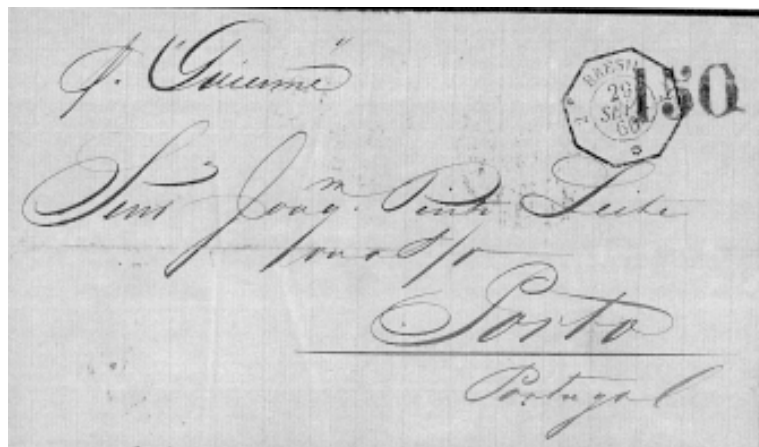 p. "Guienne"
BRESIL
29
SEPT
60
150
Senr Joaqm. Pinto Leite
Porto
Portugal